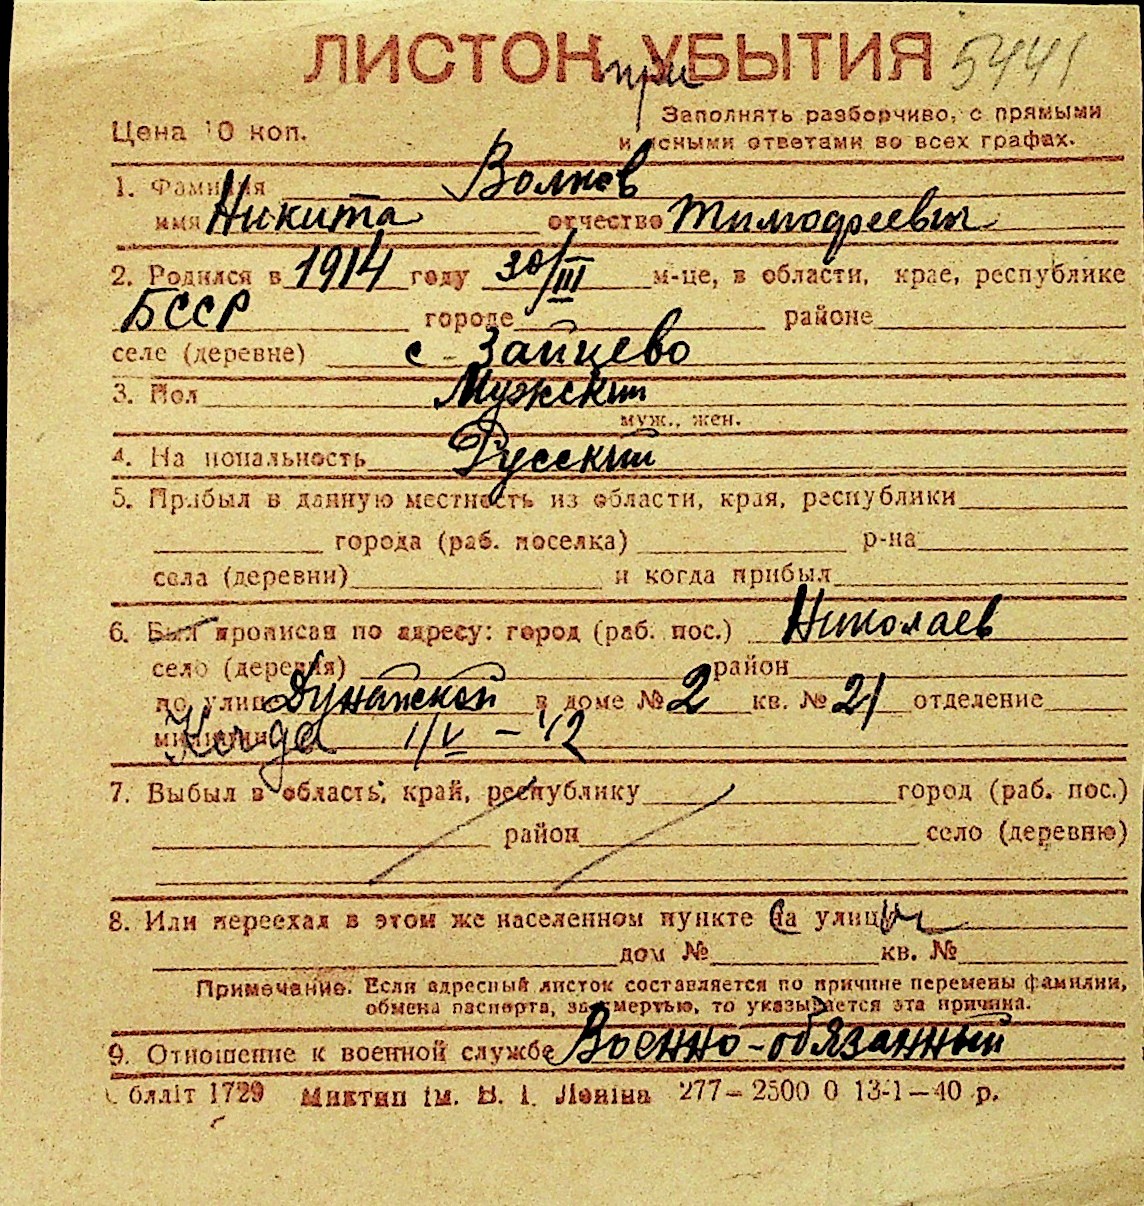 ЛИСТОК УБЫТИЯ 5441
при
Цена 10 коп.
Заполнять разборчиво, с прямыми
и ясными ответами во всех графах.
1. Фамилия Волков
имя Никита отчество Тимофеевич
2. Родился в 1914 году 30/III м-це, в области, крае, республике
БССР городе районе
селе (деревне) с-Зайцево
3. Пол Мужский
муж., жен.
4. Национальность Русский
5. Прибыл в данную местность из области, края, республики
города (раб. поселка) р-на
села (деревни) и когда прибыл
6. Был прописан по адресу: город (раб. пос.) Николаев
село (деревня) район
по улице Дунайской в доме № 2 кв. № 21 отделение
милиции Когда 1/V - 42
7. Выбыл в область, край, республику город (раб. пос.)
район село (деревню)
8. Или переехал в этом же населенном пункте на улицу
дом № кв. №
Примечание. Если адресный листок составляется по причине перемены фамилии,
обмена паспорта, за смертью, то указывается эта причина.
9. Отношение к военной службе Военно-обязанный
Обллiт 1729 Миктип iм. В. I. Ленiна 277—2500 0 13-1—40 р.